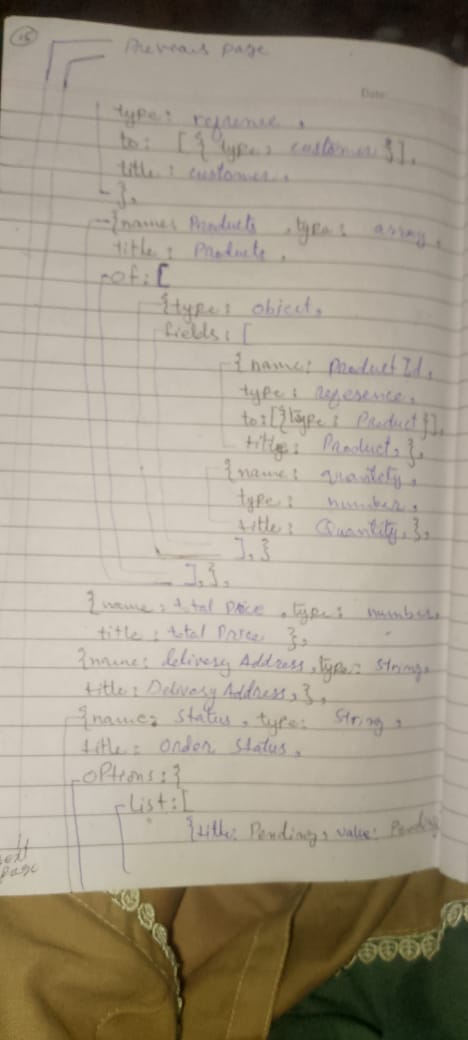 15
Previous page
Date:
type: refrence,
to: [{type: customer}],
title: customer,
},
{name: Products, type: array,
title: Products,
of: [
{type: object,
fields: [
{name: Product Id,
type: reference,
to: [{type: Product}],
title: Product, },
{name: quantity,
type: number,
title: Quantity, },
], }
], },
{name: total price, type: number,
title: total Price },
{name: delivery Address, type: String,
title: Delivery Address, },
{name: Status, type: String,
title: Order Status,
options: {
list: [
{title: Pending, value: Pending
next
page